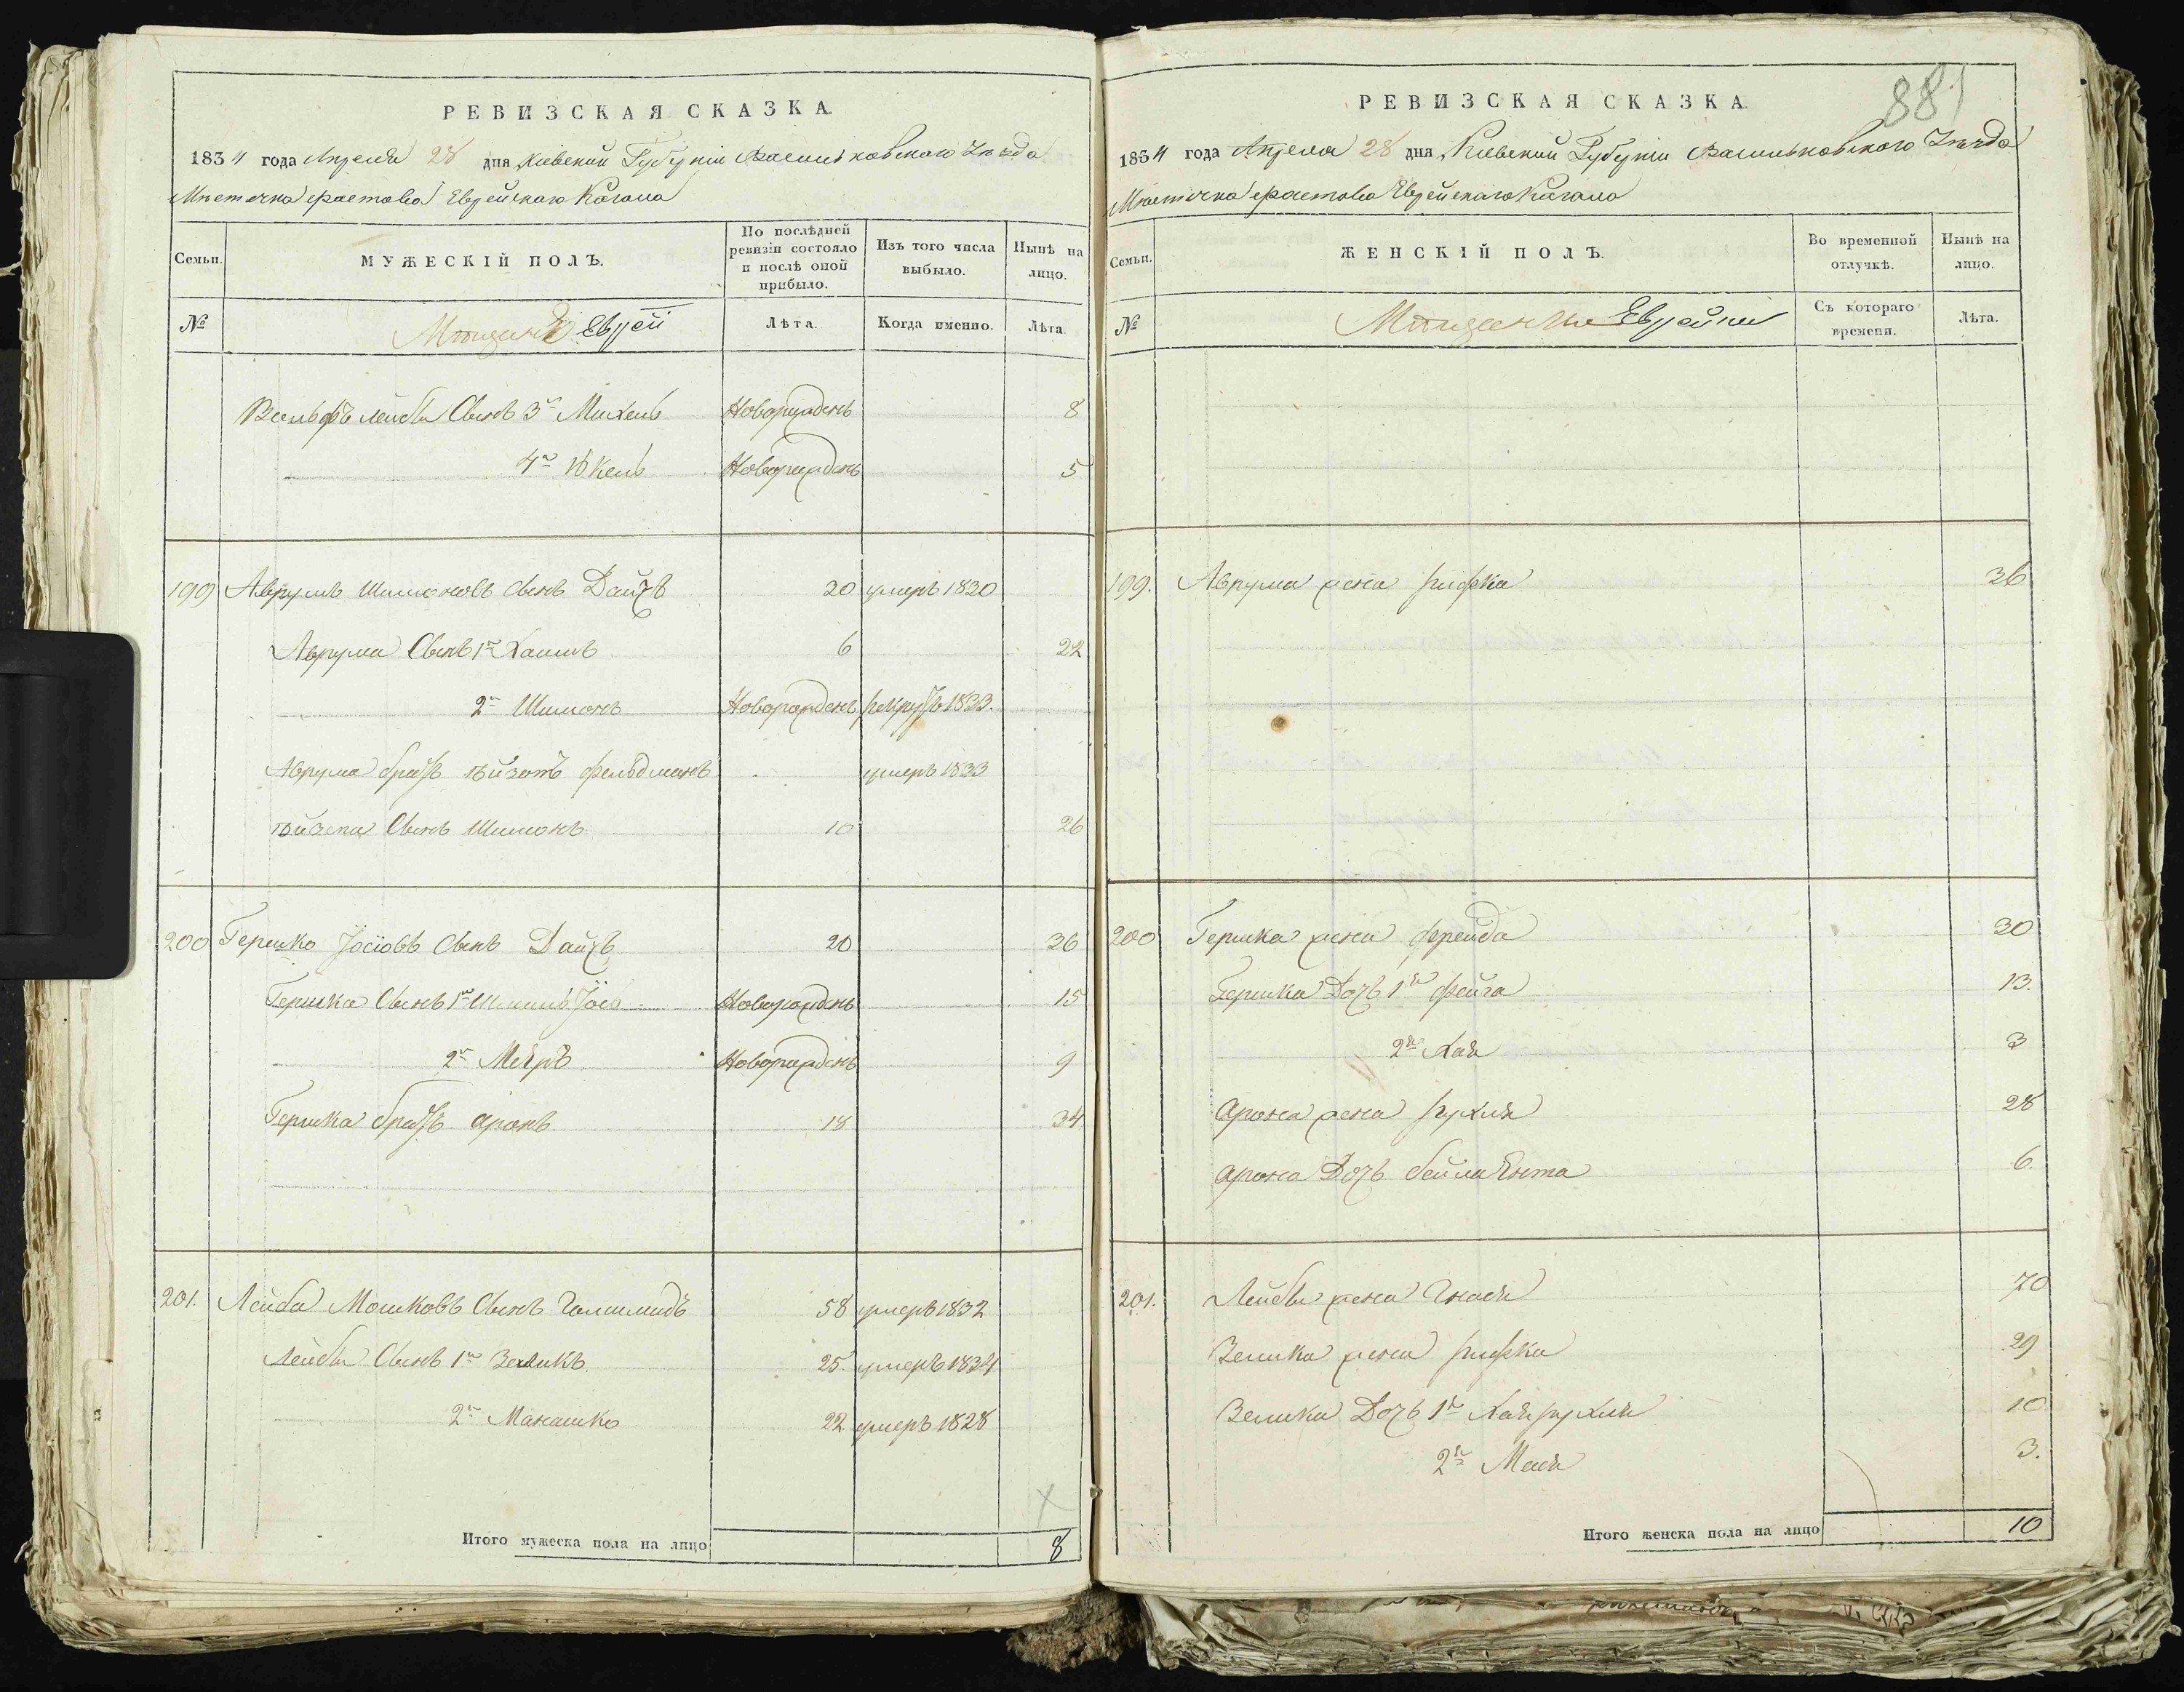 РЕВИЗСКАЯ СКАЗКА.
1834 года Апреля 28 дня Кіевской Губерніи Васильковскаго Уезда
Местечка Фастова Еврейскаго Кагала
Семьи. МУЖЕСКІЙ ПОЛЪ. По послѣдней ревизіи состояло и послѣ оной прибыло. Изъ того числа выбыло. Нынѣ на лицо.
№ Мещане Евреи Лѣта. Когда именно. Лѣта
Вольфъ Лейбы Сынъ 3й Михель Новорожденъ 8
4й Юкель Новорожденъ 5
199 Аврумъ Шимоновъ Сынъ Дайчъ 20 умеръ 1820
Аврума Сынъ 1й Хаимъ 6 22
2й Шимонъ Новорожденъ рекрутъ 1833.
Аврума братъ Фельдманъ умеръ 1833
Сынъ Шимонъ 10 26
200 Гершко Іосіовъ Сынъ Дайчъ 20 36
Гершка Сынъ 1й Новорожденъ 15
2й Меиръ Новорожденъ 9
Гершка братъ Аронъ 18 34
201. Лейба Мошковъ Сынъ 58 умеръ 1832
Лейбы Сынъ 1й Зеликъ 25. умеръ 1834
2й Манашко 22 умеръ 1828
Итого мужеска пола на лицо 8
881
РЕВИЗСКАЯ СКАЗКА
1834 года Апреля 28 дня Кіевской Губерніи Васильковскаго Уезда
Местечка Фастова Еврейскаго Кагала
Семьи. ЖЕНСКІЙ ПОЛЪ. Во временной отлучкѣ. Нынѣ на лицо.
№ Мещанки Еврейки Съ котораго времени. Лѣта.
199. Аврума жена Рифка 36
200 Гершка жена Фрейда 30
Гершка Дочь 1я Фейга 13.
2я Хая 3
Арона жена Рухля 28
Арона Дочь Бейла Ента 6.
201. Лейбы жена Гнася 70
Зелика жена Рифка 29
Зелика Дочь 1я Хая Рухля 10
2я 3.
Итого женска пола на лицо 10